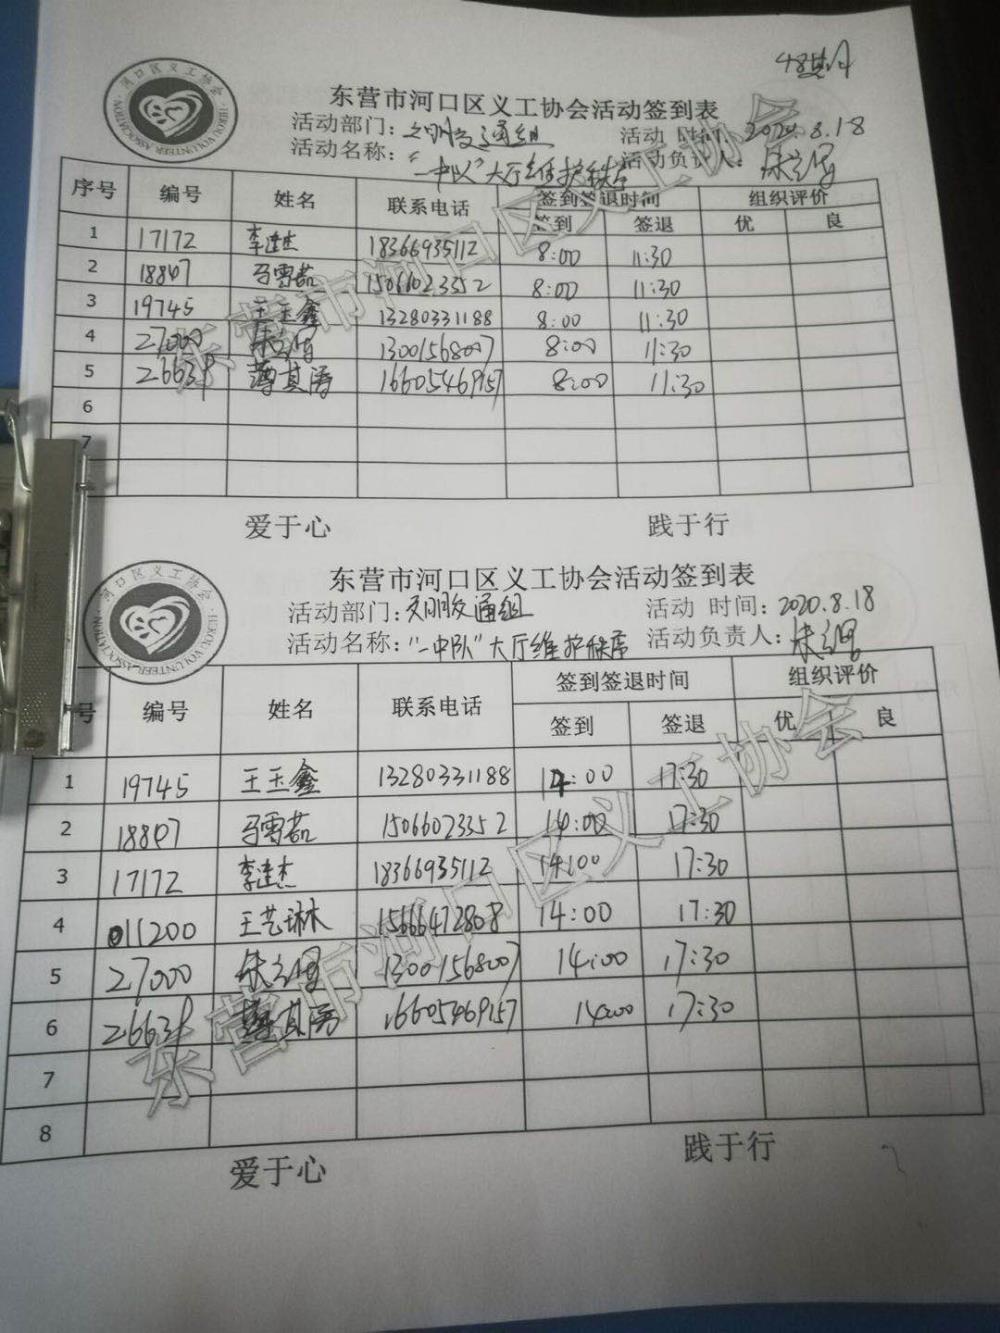 东营市河口区义工协会活动签到表
活动部门：文明交通组 活动 时间：2020.8.18
活动名称：“一中队”大厅维护秩序 活动负责人：
序号 编号 姓名 联系电话 签到签退时间 组织评价
签到 签退 优 良
1 17172 李建杰 18366935112 8:00 11:30
2 18807 马雪茹 15066023352 8:00 11:30
3 19745 王玉鑫 13280331188 8:00 11:30
4 27000 13001568007 8:00 11:30
5 26639 薄其涛 16605469157 8:00 11:30
6
7
爱于心 践于行
河口区义工协会
HEKOU VOLUNTEER ASSOCIATION
东营市河口区义工协会活动签到表
活动部门：文明交通组 活动 时间：2020.8.18
活动名称：“一中队”大厅维护秩序 活动负责人：
号 编号 姓名 联系电话 签到签退时间 组织评价
签到 签退 优 良
1 19745 王玉鑫 13280331188 14:00 17:30
2 18807 马雪茹 15066023352 14:00 17:30
3 17172 李建杰 18366935112 14:00 17:30
4 011200 王艺琳 15666472808 14:00 17:30
5 27000 13001568007 14:00 17:30
6 26639 薄其涛 16605469157 14:00 17:30
7
8
爱于心 践于行
河口区义工协会
HEKOU VOLUNTEER ASSOCIATION
东营市河口区义工协会
东营市河口区义工协会